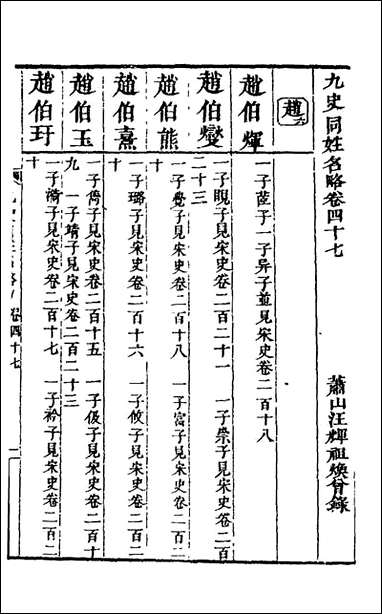 九史同姓名略卷四十七
蕭山汪輝祖煥曾錄
趙六
趙伯輝
一子莊子一子异子並見宋史卷二百十八
趙伯燮
一子睍子見宋史卷二百二十一 一子崇子見宋史卷二百
二十三
趙伯熊
一子覺子見宋史卷二百十八 一子富子見宋史卷二百二
十
趙伯熹
一子璐子見宋史卷二百十六 一子攸子見宋史卷二百二
十
趙伯玉
一子儔子見宋史卷二百十五 一子伋子見宋史卷二百十
九 一子靖子見宋史卷二百二十三
趙伯玗
一子漪子見宋史卷二百十七 一子衿子見宋史卷二百二
十
卷四十七
一